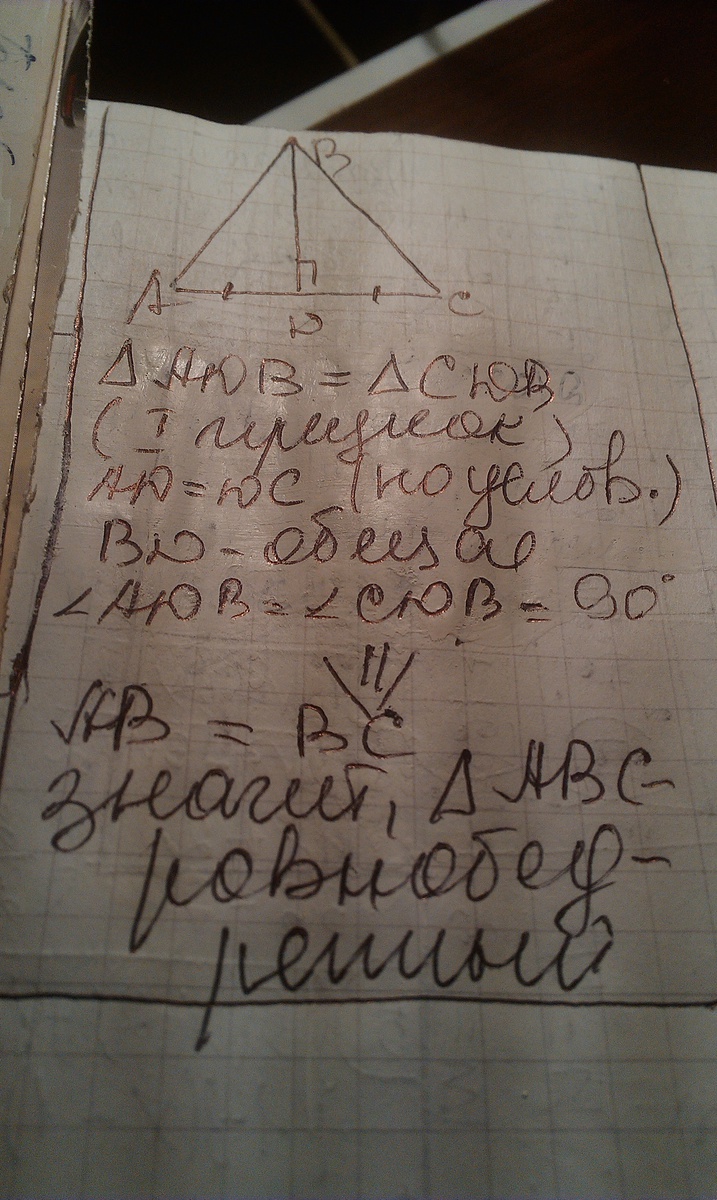 B
A
C
D
Δ ADB = Δ CDB
(I признак)
AD = DC (по услов.)
BD - общая
∠ADB = ∠CDB = 90°
AB = BC
значит, Δ ABC-
равнобед-
ренный